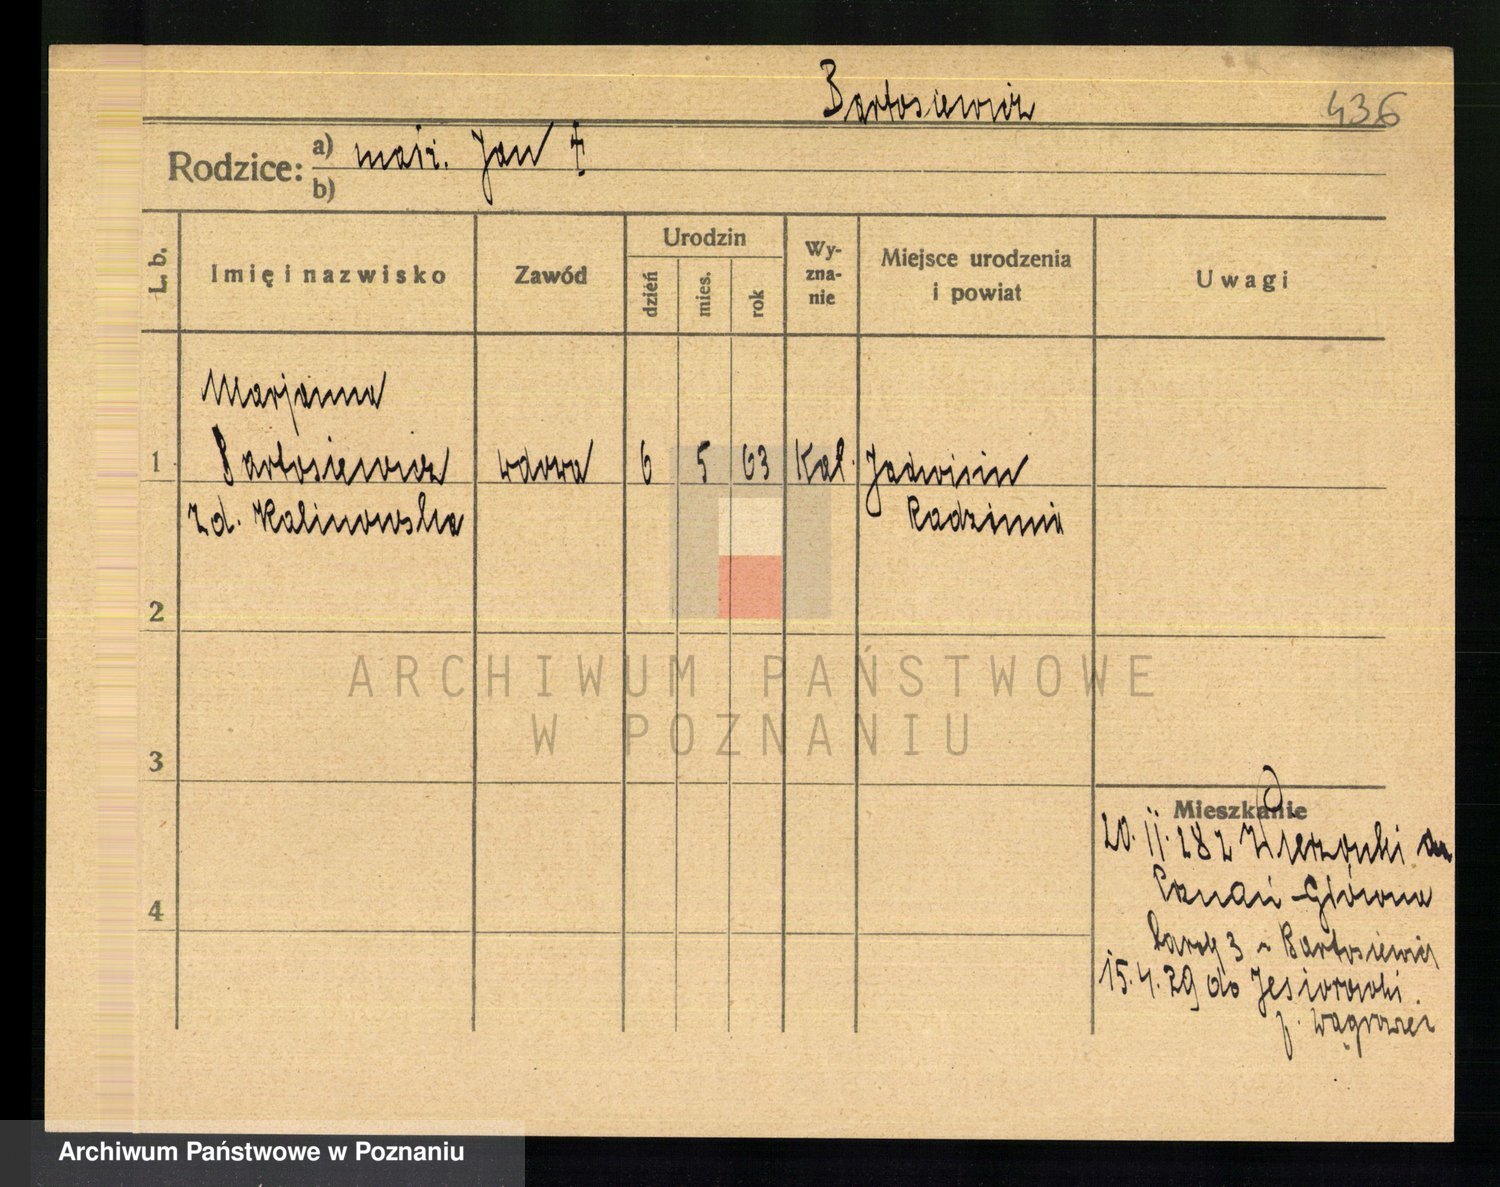 Bartosiewicz
436
Rodzice: a) małż. Jan †
b)
L. b.
Imię i nazwisko
Zawód
Urodzin
dzień
mies.
rok
Wy-
zna-
nie
Miejsce urodzenia
i powiat
Uwagi
Marjanna
1 Bartosiewicz wdowa 6 5 63 Kat. Jadwisin
zd. Kalinowska Radzimin
2
3
4
ARCHIWUM PAŃSTWOWE
W POZNANIU
Mieszkanie
20. II. 28 z Wierzonki do
Poznań-Główna
3 Bartosiewicz
15. 4. 29 do Jesiorowski.
p. Wągrowiec
Archiwum Państwowe w Poznaniu